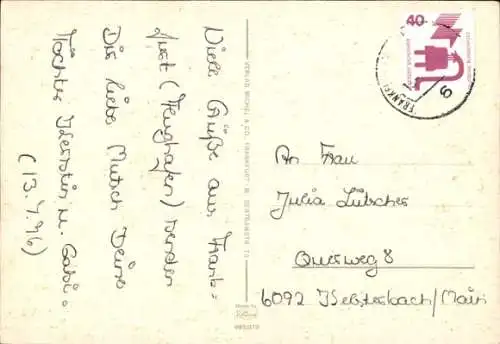 Viele Grüße aus Frank-
furt (Flughafen) senden
Dir liebe Mutsch Deine
Töchter Kerstin u. Gabi.
(13.4.76)
VERLAG MICHEL & CO., FRANKFURT M.
40
DEUTSCHE BUNDESPOST
FRANKF
6
An Frau
Julia Lütscher
Querweg 8
6092 Kelsterbach/Main